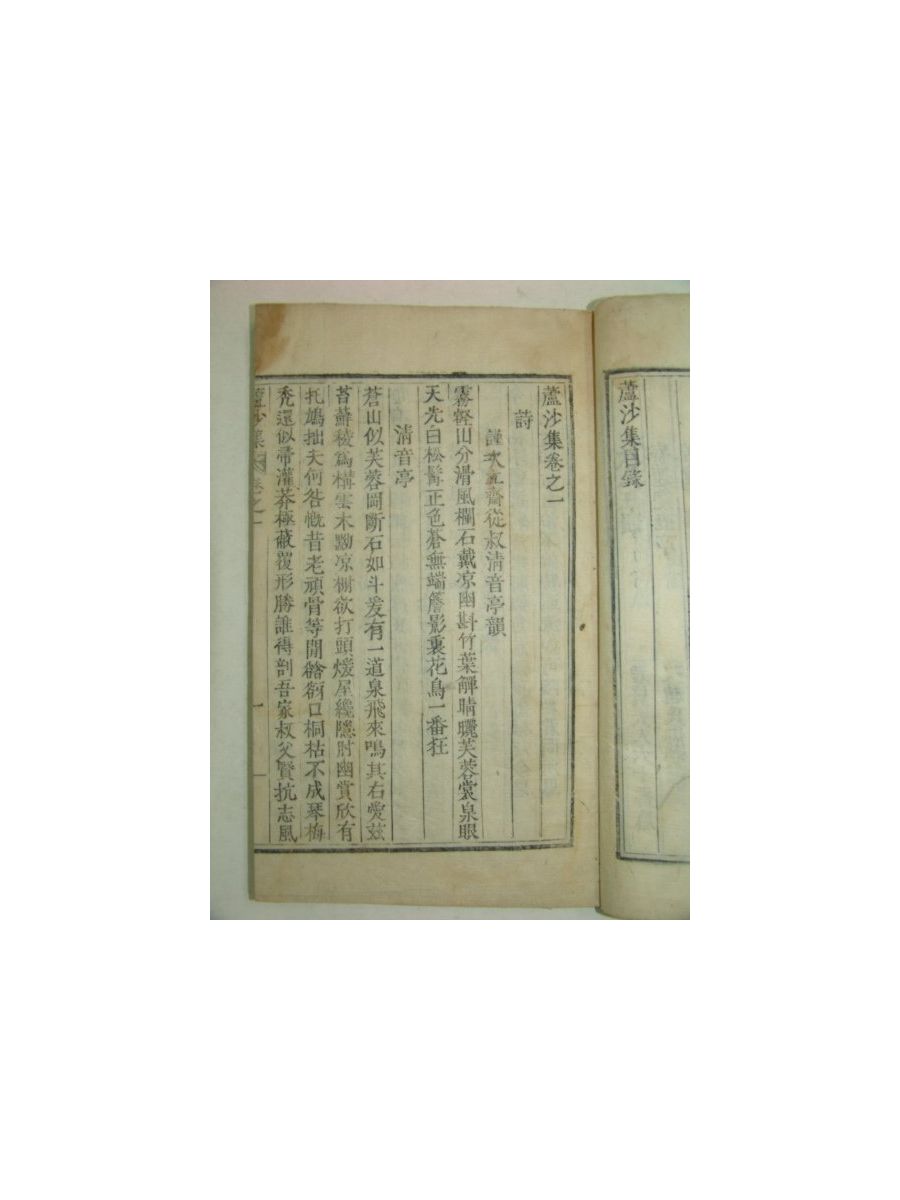 蘆沙集目錄
蘆沙集卷之一
詩
謹次 齋從叔清音亭韻
霧輕山分滑風欄石戴凉幽斟竹葉觶晴曬芙蓉裳泉眼
天先白松髯正色蒼無端簷影裏花鳥一番狂
清音亭
蒼山似芙蓉岡斷石如斗爰有一道泉飛來鳴其右愛玆
苔蘚稜爲構雲木黝凉榭欲打頭煖屋纔隱肘幽賞欣有
托鳩拙夫何咎慨昔老頑骨等閒 口桐枯不成琴梅
禿還似帚瀧莽極蔽覆形勝誰得剖吾家叔父賢抗志風
蘆沙集 卷之一 一